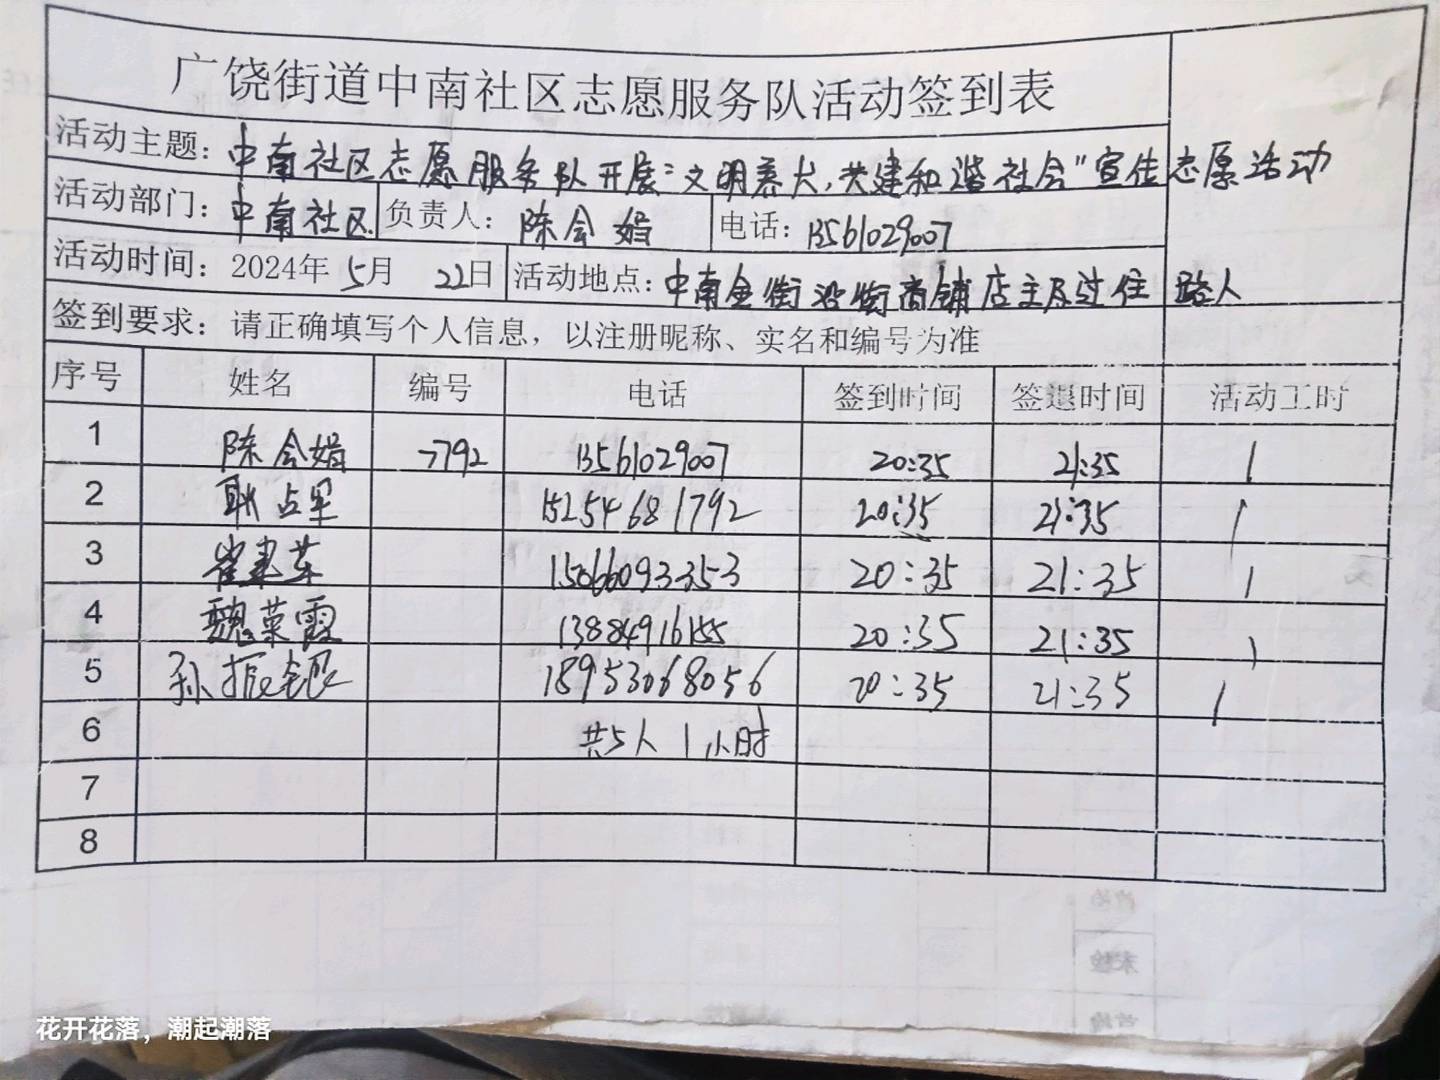 广饶街道中南社区志愿服务队活动签到表
活动主题：中南社区志愿服务队开展“文明养犬，共建和谐社会”宣传志愿活动
活动部门：中南社区 负责人：陈会娟 电话：13561029007
活动时间：2024年5月22日 活动地点：中南金街沿街商铺店主及过往路人
签到要求：请正确填写个人信息，以注册昵称、实名和编号为准
序号 姓名 编号 电话 签到时间 签退时间 活动工时
1 陈会娟 7792 13561029007 20:35 21:35 1
2 耿占军 15254681792 20:35 21:35 1
3 崔建英 15066093353 20:35 21:35 1
4 魏菜霞 13884916155 20:35 21:35 1
5 孙振银 18953068056 20:35 21:35 1
6 共5人 1小时
7
8
花开花落，潮起潮落